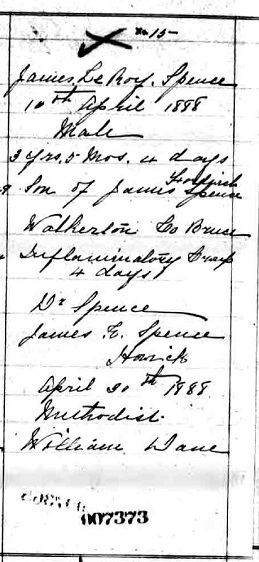 No. 15-
James Le Roy. Spence
10th April 1888
Male
3 Yrs. 5 Mos. 4 days
Son of James Spence
Walkerton Co Bruce
Inflammatory Croup
4 days
Dr Spence
James F. Spence
Howick
April 20th 1888
Methodist.
William Dane
007373